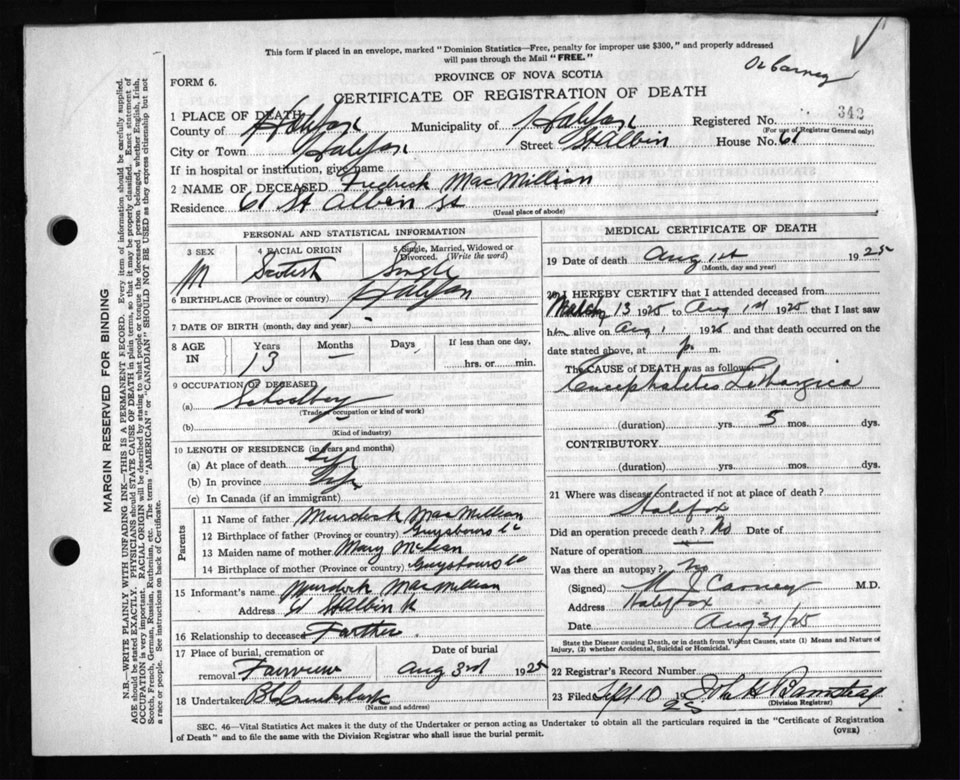 This form if placed in an envelope, marked "Dominion Statistics—Free, penalty for improper use $300," and properly addressed
will pass through the Mail "FREE."
Dr Carney
PROVINCE OF NOVA SCOTIA
FORM 6.
CERTIFICATE OF REGISTRATION OF DEATH
1 PLACE OF DEATH
County of Halifax Municipality of Halifax Registered No. 342
(For use of Registrar General only)
City or Town Halifax Street St Albin House No. 61
If in hospital or institution, give name
2 NAME OF DECEASED Fredrick MacMillian
Residence 61 St Albin St
(Usual place of abode)
PERSONAL AND STATISTICAL INFORMATION
3 SEX 4 RACIAL ORIGIN 5 Single, Married, Widowed or Divorced. (Write the word)
M Scotish Single
6 BIRTHPLACE (Province or country) Halifax
7 DATE OF BIRTH (month, day and year)
8 AGE IN Years Months Days If less than one day,
13 — hrs. or min.
9 OCCUPATION OF DECEASED
(a) Schoolboy
(Trade, occupation or kind of work)
(b)
(Kind of industry)
10 LENGTH OF RESIDENCE (in years and months)
(a) At place of death life
(b) In province life
(c) In Canada (if an immigrant)
Parents
11 Name of father Murdock MacMillian
12 Birthplace of father (Province or country) Guysbouro Co
13 Maiden name of mother Mary McLean
14 Birthplace of mother (Province or country) Guysbouro Co
15 Informant's name Murdock MacMillian
Address 61 St Albin St
16 Relationship to deceased Farther
17 Place of burial, cremation or removal Date of burial
Fairview Aug 3rd 1925
18 Undertaker
(Name and address)
MEDICAL CERTIFICATE OF DEATH
19 Date of death Aug 1st 1925
(Month, day and year)
20 I HEREBY CERTIFY that I attended deceased from
March 13 1925 to Aug 1st 1925 that I last saw
him alive on Aug 1 1925 and that death occurred on the
date stated above, at p. m.
The CAUSE OF DEATH was as follows:
Encephalitis Lethargica
(duration) yrs. 5 mos. dys.
CONTRIBUTORY
(duration) yrs. mos. dys.
21 Where was disease contracted if not at place of death?
Halifax
Did an operation precede death? No Date of
Nature of operation —
Was there an autopsy? No
(Signed) M J Carney M.D.
Address Halifax
Date Aug 31/25
State the Disease causing Death, or in death from Violent Causes, state (1) Means and Nature of
Injury, (2) whether Accidental, Suicidal or Homicidal.
22 Registrar's Record Number
23 Filed Sept 10 1925
(Division Registrar)
SEC. 46—Vital Statistics Act makes it the duty of the Undertaker or person acting as Undertaker to obtain all the particulars required in the "Certificate of Registration
of Death" and to file the same with the Division Registrar who shall issue the burial permit.
(OVER)
MARGIN RESERVED FOR BINDING
N.B.—WRITE PLAINLY WITH UNFADING INK—THIS IS A PERMANENT RECORD. Every item of information should be carefully supplied.
AGE should be stated EXACTLY. PHYSICIANS should STATE CAUSE OF DEATH in plain terms, so that it may be properly classified. Exact statement of
OCCUPATION is very important. RACIAL ORIGIN will be described by stating to what people or tongue the deceased person belonged, whether English, Irish,
Scotch, French, German, Russian, Ruthenian, etc. The terms "AMERICAN" or "CANADIAN" SHOULD NOT BE USED as they express citizenship but not
a race or people. See instructions on back of Certificate.